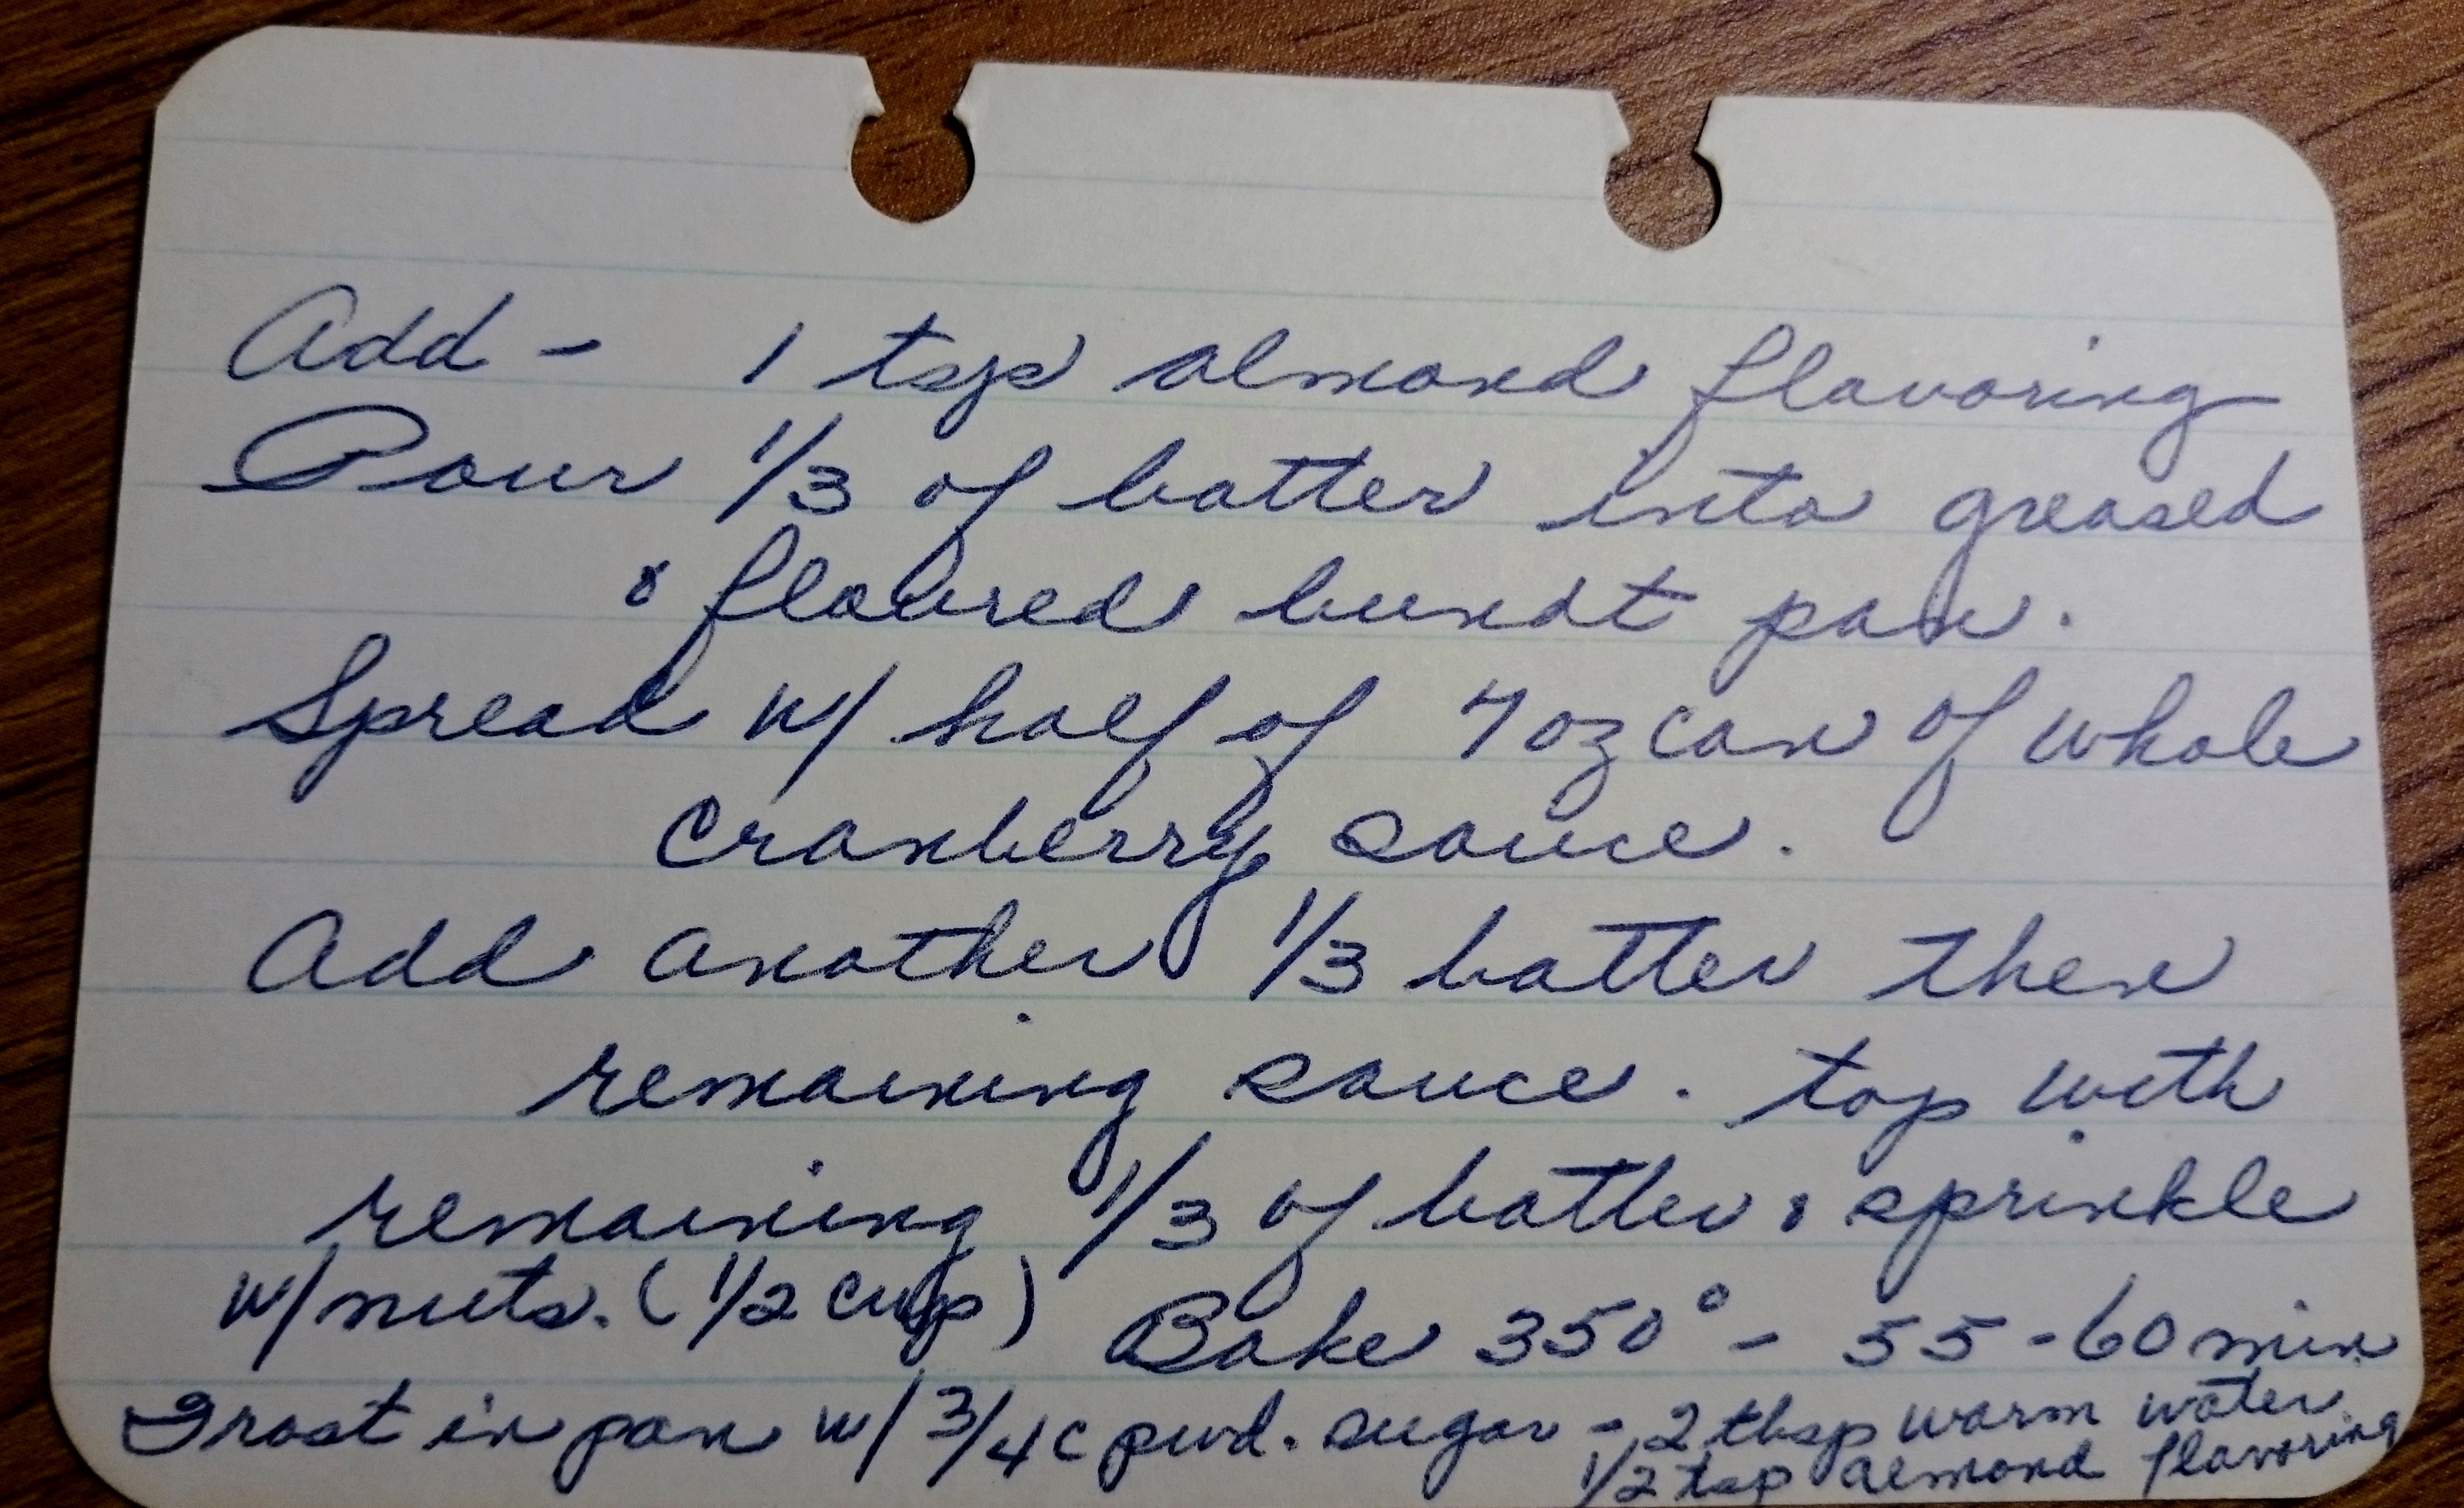 Add - 1 tsp almond flavoring
Pour 1/3 of batter into greased
& floured bundt pan.
Spread w/ half of 7 oz can of whole
cranberry sauce.
Add another 1/3 batter then
remaining sauce. top with
remaining 1/3 of batter & sprinkle
w/ nuts. (1/2 cup) Bake 350° - 55 - 60 min
Frost in pan w/ 3/4 c pwd. sugar - 2 tbsp warm water
1/2 tsp almond flavoring